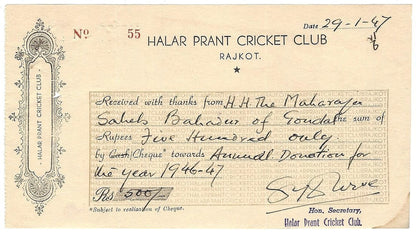 Date 29-1-47
No 55
HALAR PRANT CRICKET CLUB
RAJKOT.
HALAR PRANT CRICKET CLUB
Received with thanks from H. H. The Maharaja
Saheb Bahadur of Gondal the sum of
Rupees Five Hundred only
by Cash/Cheque towards Annual Donation for
the year 1946-47
Rs. 500/-
*Subject to realisation of Cheque.
Hon. Secretary,
Halar Prant Cricket Club.